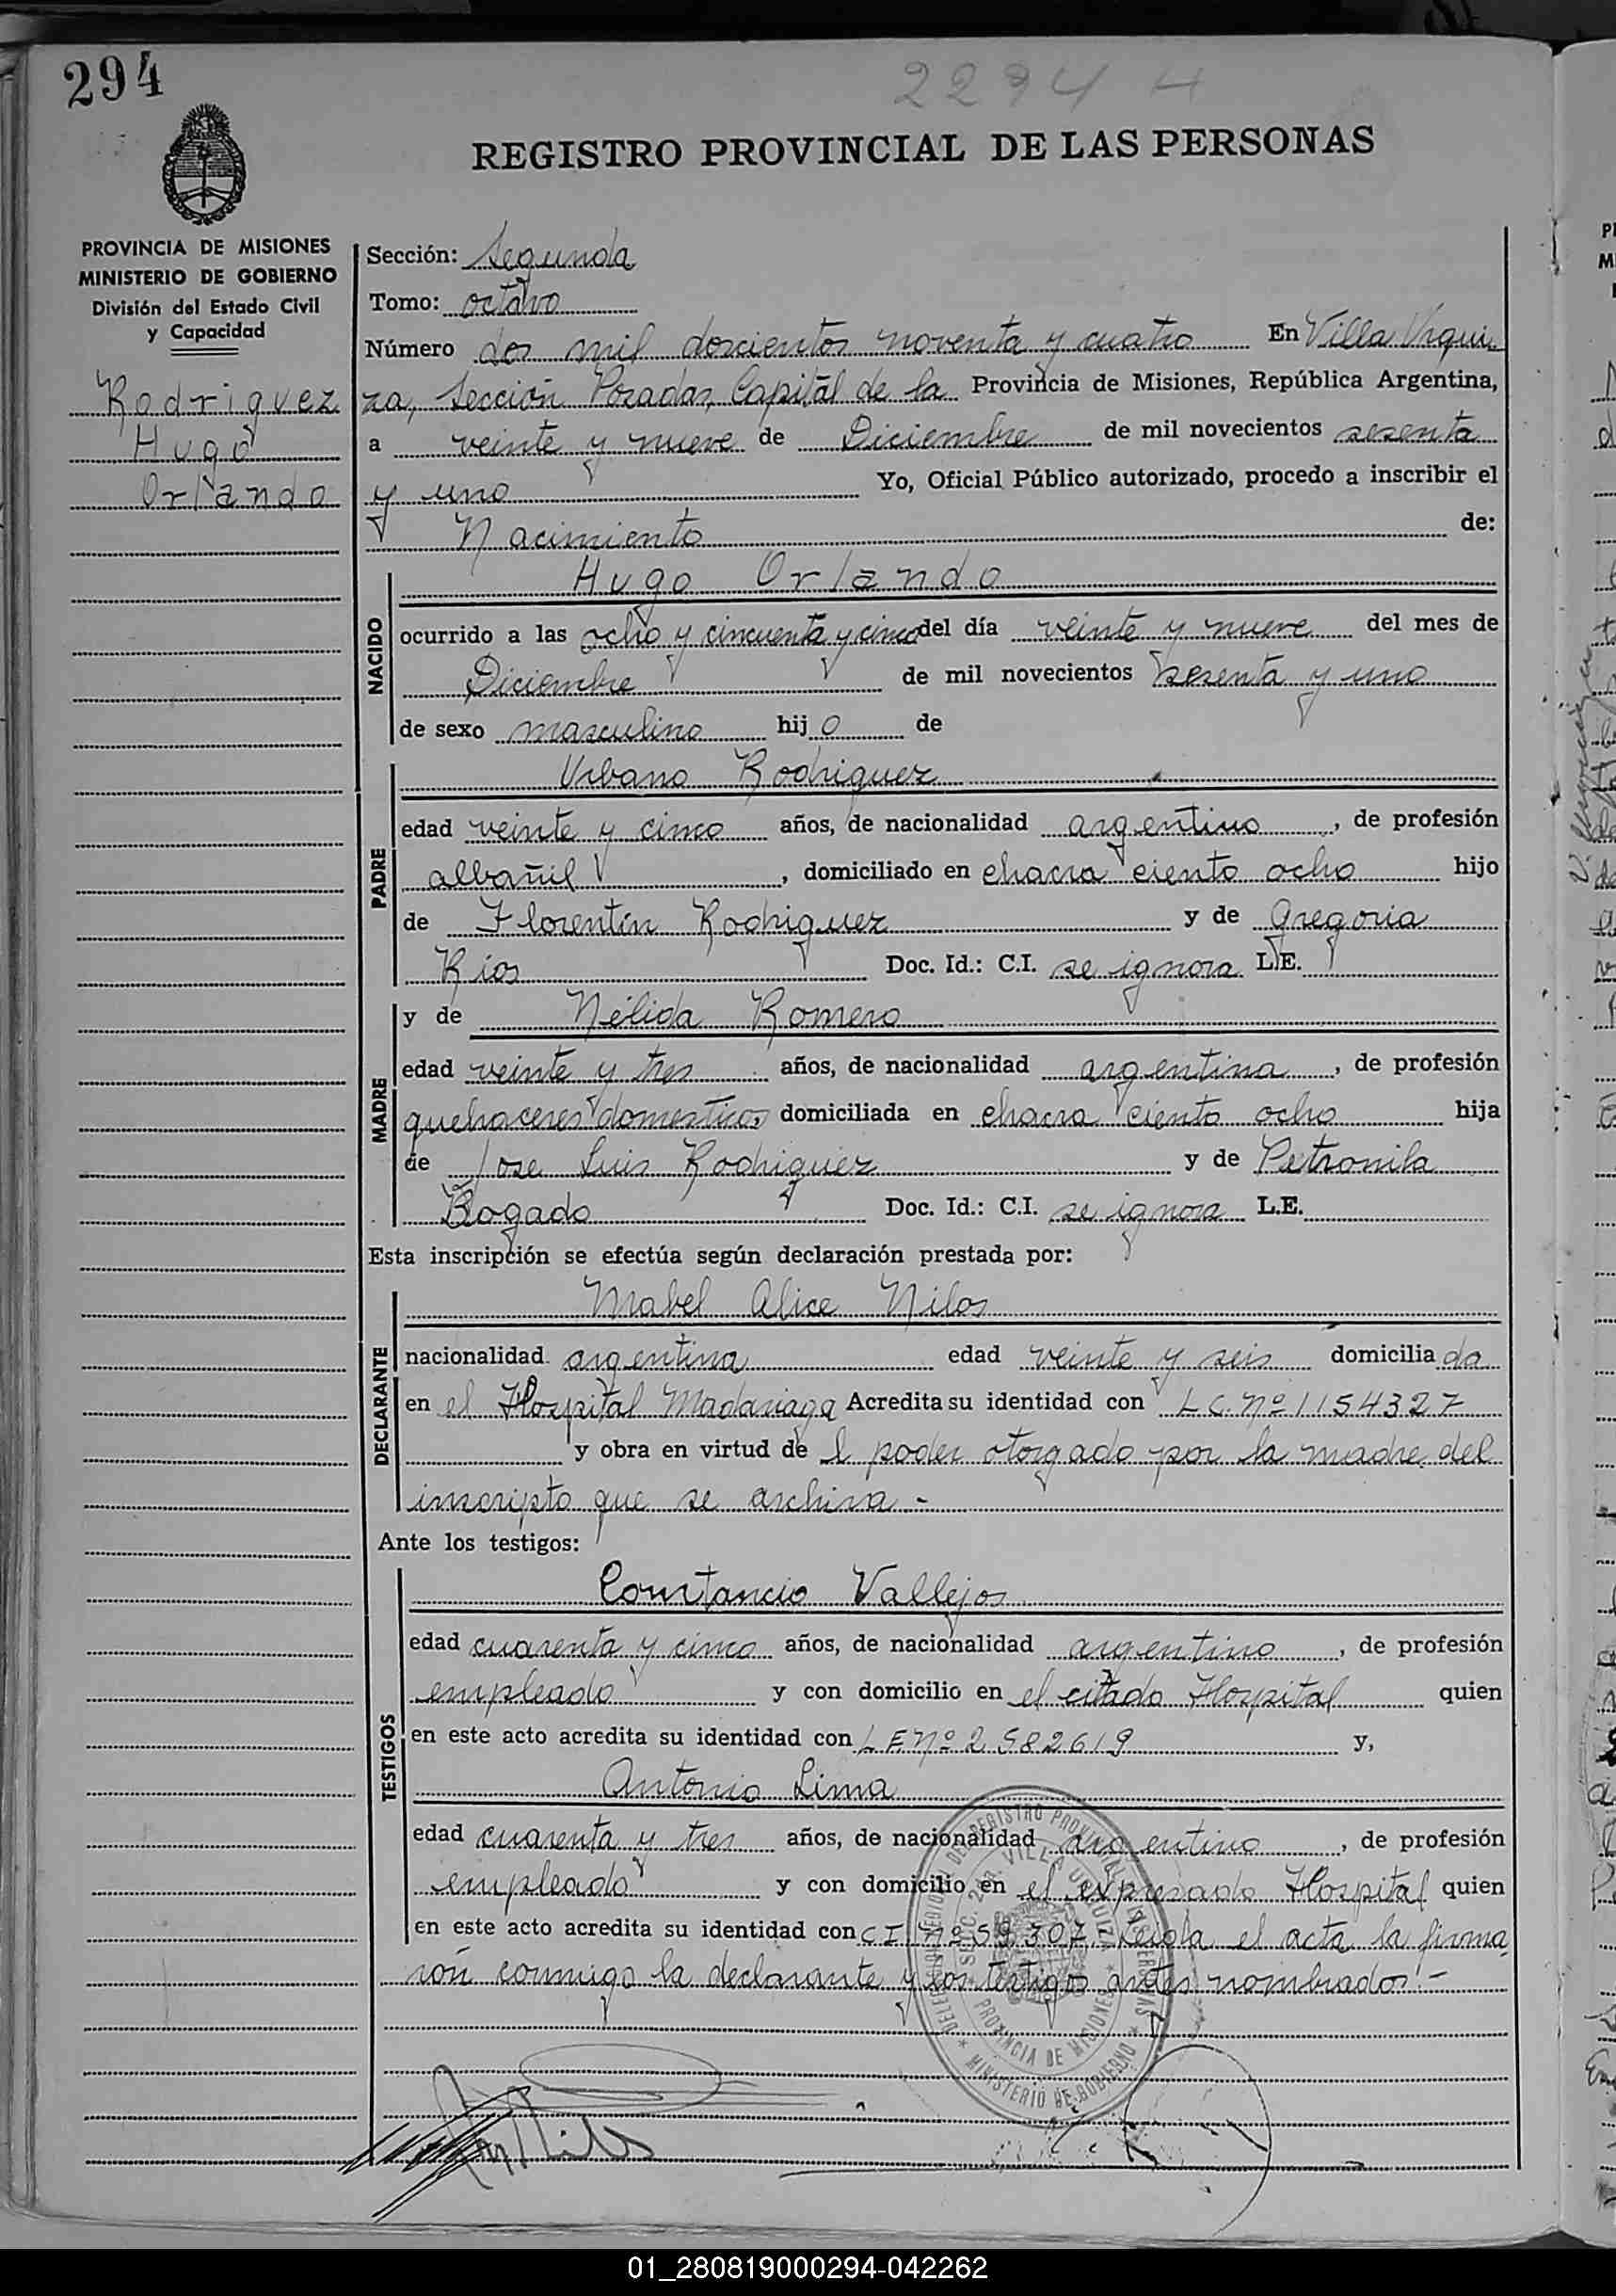 294
2294 H
REGISTRO PROVINCIAL DE LAS PERSONAS
PROVINCIA DE MISIONES
MINISTERIO DE GOBIERNO
División del Estado Civil
y Capacidad
Rodriguez
Hugo
Orlando
Sección: Segunda
Tomo: octavo
Número dos mil doscientos noventa y cuatro En Villa Urqui-
za, Sección Posadas, Capital de la Provincia de Misiones, República Argentina,
a veinte y nueve de Diciembre de mil novecientos sesenta
y uno Yo, Oficial Público autorizado, procedo a inscribir el
Nacimiento de:
NACIDO
Hugo Orlando
ocurrido a las ocho y cincuenta y cinco del día veinte y nueve del mes de
Diciembre de mil novecientos sesenta y uno
de sexo masculino hijo de
PADRE
Urbano Rodriguez
edad veinte y cinco años, de nacionalidad argentino, de profesión
albañil, domiciliado en chacra ciento ocho hijo
de Florentín Rodriguez y de Gregoria
Ríos Doc. Id.: C.I. se ignora L.E.
MADRE
y de Nélida Romero
edad veinte y tres años, de nacionalidad argentina, de profesión
quehaceres domesticos domiciliada en chacra ciento ocho hija
de Jose Luis Rodriguez y de Petronila
Bogado Doc. Id.: C.I. se ignora L.E.
Esta inscripción se efectúa según declaración prestada por:
DECLARANTE
Mabel Alice Nilos
nacionalidad argentina edad veinte y seis domiciliada
en el Hospital Madariaga Acredita su identidad con L C. Nº 1154327
y obra en virtud del poder otorgado por la madre del
inscripto que se archiva.-
Ante los testigos:
TESTIGOS
Constancio Vallejos
edad cuarenta y cinco años, de nacionalidad argentino, de profesión
empleado y con domicilio en el citado Hospital quien
en este acto acredita su identidad con L E Nº 2 582619 y,
Antonio Lima
edad cuarenta y tres años, de nacionalidad argentino, de profesión
empleado y con domicilio en el expresado Hospital quien
en este acto acredita su identidad con C I Nº 59.307. Leida el acta la firma
rón conmigo la declarante y los testigos antes nombrados.-
SEC. 2da. VILLA URQUIZA
PROVINCIA DE MISIONES
MINISTERIO DE GOBIERNO
01_280819000294-042262